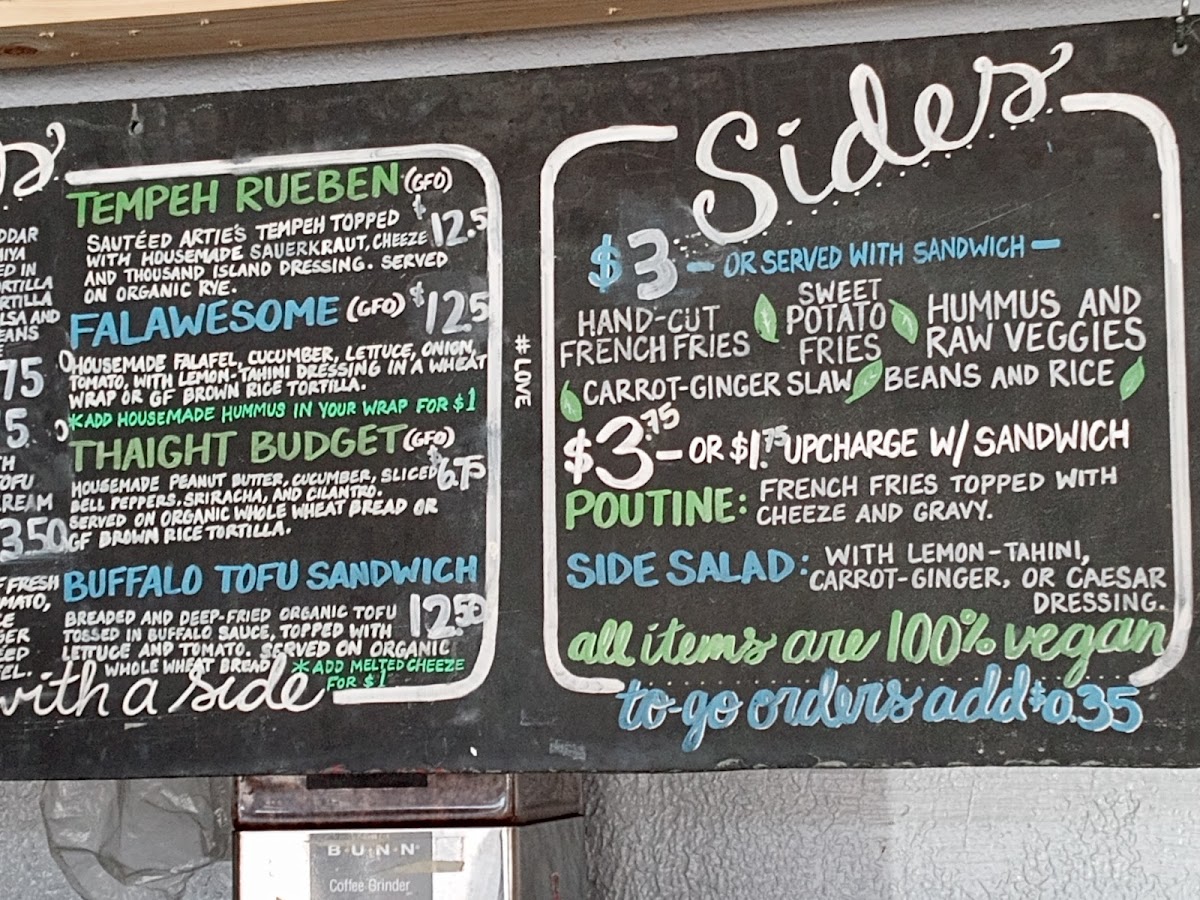 DDAR
IYA
ED IN
RTILLA
RTILLA
LSA AND
EANS
75
5.
TH
OFU
REAM
3.50
F FRESH
MATO,
CE
GER
EED
EL.
TEMPEH RUEBEN (GFO)
SAUTÉED ARTIE'S TEMPEH TOPPED $12.5
WITH HOUSEMADE SAUERKRAUT, CHEEZE
AND THOUSAND ISLAND DRESSING. SERVED
ON ORGANIC RYE.
FALAWESOME (GFO) $12.5
HOUSEMADE FALAFEL, CUCUMBER, LETTUCE, ONION,
TOMATO, WITH LEMON-TAHINI DRESSING IN A WHEAT
WRAP OR GF BROWN RICE TORTILLA.
*ADD HOUSEMADE HUMMUS IN YOUR WRAP FOR $1
THAIGHT BUDGET (GFO)
HOUSEMADE PEANUT BUTTER, CUCUMBER, SLICED $6.75
BELL PEPPERS, SRIRACHA, AND CILANTRO.
SERVED ON ORGANIC WHOLE WHEAT BREAD OR
GF BROWN RICE TORTILLA.
BUFFALO TOFU SANDWICH
BREADED AND DEEP-FRIED ORGANIC TOFU 12.50
TOSSED IN BUFFALO SAUCE, TOPPED WITH
LETTUCE AND TOMATO. SERVED ON ORGANIC
WHOLE WHEAT BREAD *ADD MELTED CHEEZE
FOR $1
with a side
#LOVE
Sides
$3 - OR SERVED WITH SANDWICH -
HAND-CUT
FRENCH FRIES
SWEET
POTATO
FRIES
HUMMUS AND
RAW VEGGIES
CARROT-GINGER SLAW BEANS AND RICE
$3.75 - OR $1.75 UPCHARGE W/ SANDWICH
POUTINE: FRENCH FRIES TOPPED WITH
CHEEZE AND GRAVY.
SIDE SALAD: WITH LEMON-TAHINI,
CARROT-GINGER, OR CAESAR
DRESSING.
all items are 100% vegan
to-go orders add $0.35
B·U·N·N
Coffee Grinder